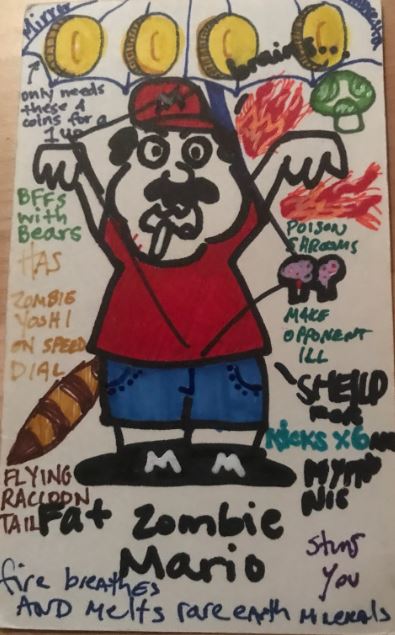 Mirror
brains...
only needs
these 4
coins for a
1 up
BFFs
with
Bears
HAS
ZOMBIE
YOSHI
ON SPEED
DIAL
M
POISON
SHROOMS
MAKE
OPPONENT
ILL
SHEILD
KICKS X6
FLYING
RACCOON
TAIL
Fat Zombie
Mario
Stuns
You
fire breathes
AND Melts rare earth Minerals